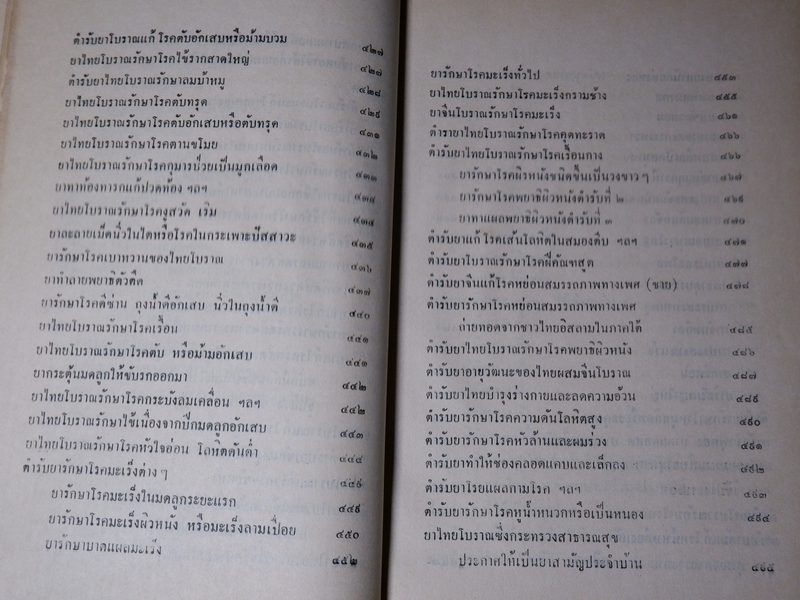 ตำรับยาโบราณแก้โรคตับอักเสบหรือม้ามบวม ๔๒๗
ยาไทยโบราณรักษาโรคไข้รากสาดใหญ่ ๔๒๗
ตำรับยาไทยโบราณรักษาลมบ้าหมู ๔๒๘
ยาไทยโบราณรักษาโรคตับทรุด ๔๒๙
ตำรับยาไทยโบราณรักษาโรคตับอักเสบหรือตับทรุด ๔๓๑
ยาไทยโบราณรักษาโรคตานขโมย ๔๓๒
ยาไทยโบราณรักษาโรคกุมารป่วยเป็นมูกเลือด ๔๓๓
ยาทาท้องทารกแก้ปวดท้อง ฯลฯ ๔๓๔
ยาไทยโบราณรักษาโรคงูสวัด เริม ๔๓๔
ยาละลายเม็ดนิ่วในไตหรือโรคในกระเพาะปัสสาวะ ๔๓๕
ยารักษาโรคเบาหวานของไทยโบราณ ๔๓๖
ยาทำลายพยาธิตัวตืด ๔๓๗
ยารักษาโรคดีซ่าน ถุงน้ำดีอักเสบ นิ่วในถุงน้ำดี ๔๔๐
ยาไทยโบราณรักษาโรคเรื้อน ๔๔๑
ยาไทยโบราณรักษาโรคตับ หรือม้ามอักเสบ ๔๔๑
ยากระตุ้นมดลูกให้ขับรกออกมา ๔๔๒
ยาไทยโบราณรักษาโรคกระบังลมเคลื่อน ฯลฯ ๔๔๒
ยาไทยโบราณรักษาไข้เนื่องจากปีกมดลูกอักเสบ ๔๔๓
ยาไทยโบราณรักษาโรคหัวใจอ่อน โลหิตดันต่ำ ๔๔๔
ตำรับยารักษาโรคมะเร็งต่าง ๆ ๔๔๙
ยารักษาโรคมะเร็งในมดลูกระยะแรก ๔๔๙
ยารักษาโรคมะเร็งผิวหนัง หรือมะเร็งลามเปื่อย ๔๕๐
ยารักษาบาดแผลมะเร็ง ๔๕๒
ยารักษาโรคมะเร็งทั่วไป ๔๕๓
ยาไทยโบราณรักษาโรคมะเร็งกรามช้าง ๔๕๕
ยาจีนโบราณรักษาโรคมะเร็ง ๔๖๑
ตำรายาไทยโบราณรักษาโรคคุดทะราด ๔๖๖
ตำรับยาไทยโบราณรักษาโรคเรื้อนกวาง ๔๖๖
ยารักษาโรคผิวหนังชนิดขึ้นเป็นวงขาว ๆ ๔๖๗
ยารักษาโรคพยาธิผิวหนังตำรับที่ ๒ ๔๖๙
ยาทาแผลพยาธิผิวหนังตำรับที่ ๓ ๔๗๐
ตำรับยาแก้โรคเส้นโลหิตในสมองตีบ ฯลฯ ๔๗๑
ตำรับยาโบราณรักษาโรคฝีคัณฑสูต ๔๗๗
ตำรับยาจีนแก้โรคหย่อนสมรรถภาพทางเพศ (ชาย) ๔๗๘
ตำรับยารักษาโรคหย่อนสมรรถภาพทางเพศ
ถ่ายทอดจากชาวไทยอิสลามในภาคใต้ ๔๘๕
ตำรับยาไทยโบราณรักษาโรคพยาธิผิวหนัง ๔๘๖
ตำรับยาอายุวัฒนะของไทยผสมจีนโบราณ ๔๘๗
ตำรับยาไทยบำรุงร่างกายและลดความอ้วน ๔๘๙
ตำรับยารักษาโรคความดันโลหิตสูง ๔๙๐
ตำรับยารักษาโรคหัวล้านและผมร่วง ๔๙๑
ตำรับยาทำให้ช่องคลอดแคบและเล็กลง ๔๙๒
ตำรับยาโรยแผลกามโรค ฯลฯ ๔๙๓
ตำรับยารักษาโรคหูน้ำหนวกหรือเป็นหนอง ๔๙๔
ยาไทยโบราณซึ่งกระทรวงสาธารณสุข
ประกาศให้เป็นยาสามัญประจำบ้าน ๔๙๕